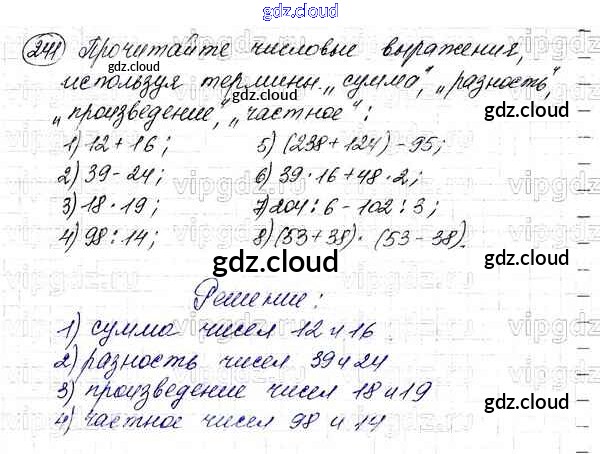 gdz.cloud
241 Прочитайте числовые выражения,
используя термины „сумма", „разность",
„произведение", „частное":
1) 12 + 16;
2) 39 - 24;
3) 18 · 19;
4) 98 : 14;
5) (238 + 124) - 95;
6) 39 · 16 + 48 · 2;
7) 204 : 6 - 102 : 3;
8) (53 + 38) · (53 - 38).
gdz.cloud
Решение:
1) сумма чисел 12 и 16
2) разность чисел 39 и 24
3) произведение чисел 18 и 19
4) частное чисел 98 и 14
gdz.cloud
gdz.cloud
gdz.cloud
gdz.cloud
gdz.cloud
gdz.cloud